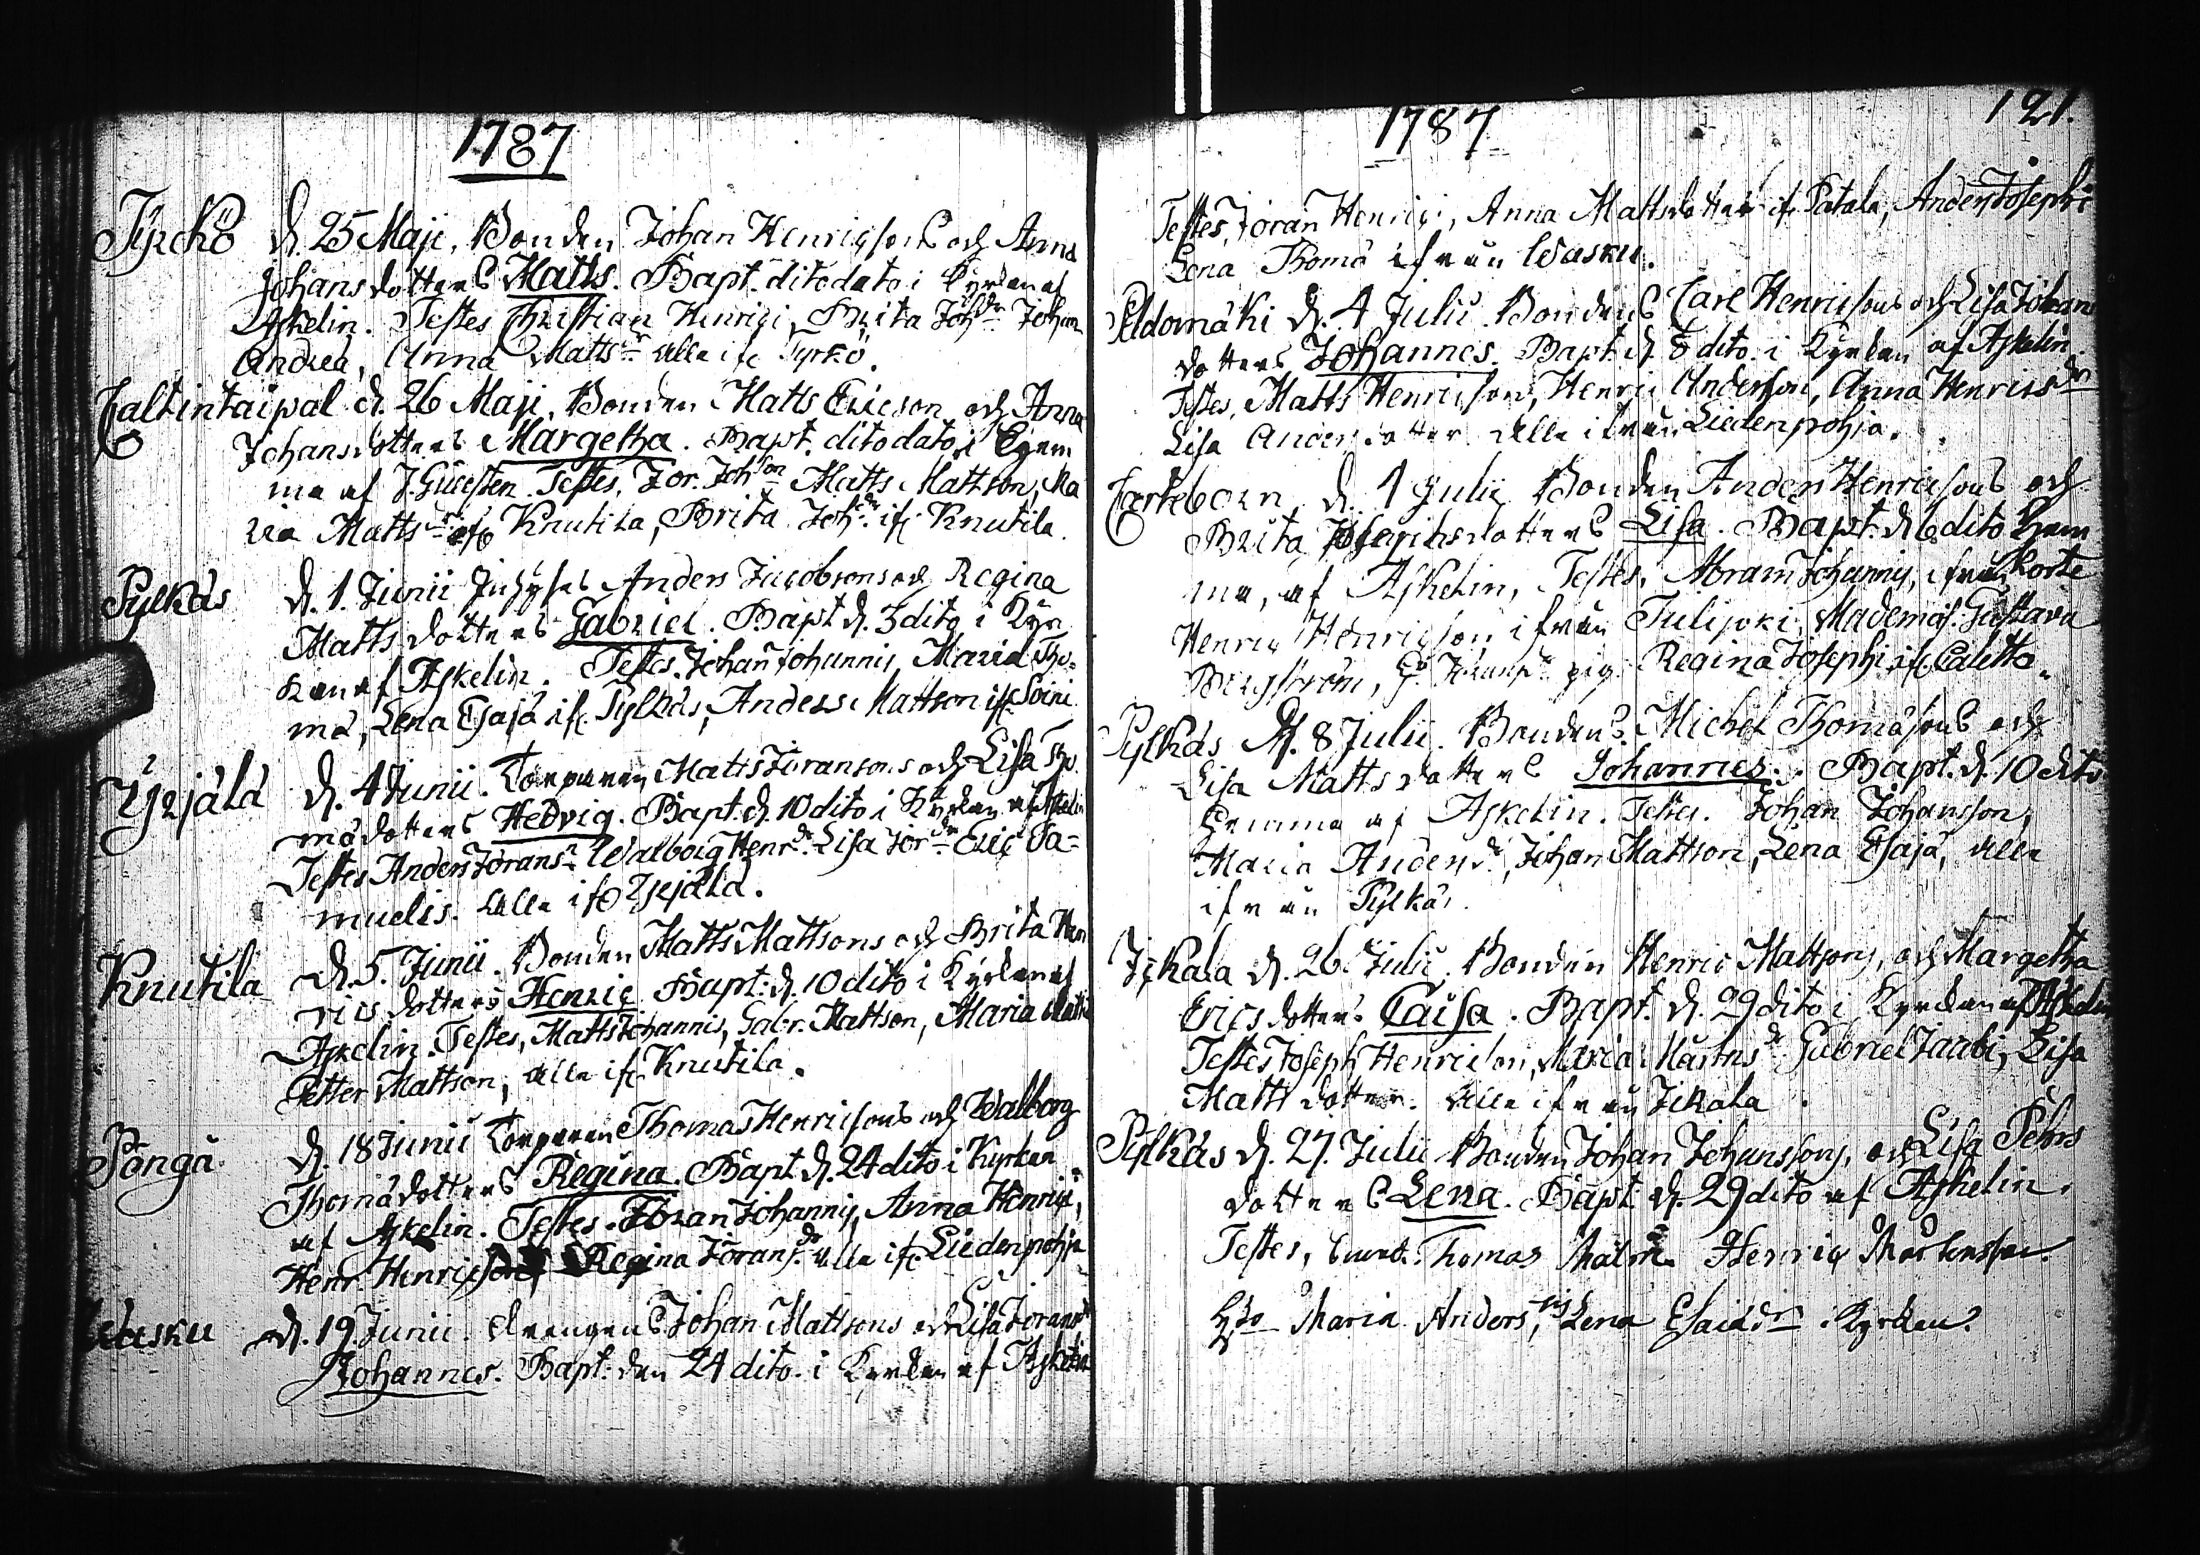 1787
Tyrckö d. 25 Maji. Bonden Johan Henricsons och Anna
Johansdotters Matts. Bapt. dito dato i Kyrkan af
Askelin. Testes Christian Henrici, Brita Joh:dr Johan
Andreä, Anna Matts:r alla ifr Tyrkö.
Caltintaipal d. 26 Maji. Bonden Matts Ericson och Anna
Johansdotters Margetha. Bapt. dito dato i Hem
ma af J. Testes. Jör. Joh:son Matts Mattson, Ma
ria Matts:r ifr Knutila, Brita Joh:dr ifr Knutila.
Pylkäs d. 1. Junii Anders Jacobsons och Regina
Mattsdotters Gabriel. Bapt d. 3 dito i Kyr
kan af Askelin. Testes. Johan Johannis, Maria Tho-
mä, Lena Esajä ifr Pylkäs, Anders Mattson ifr Soini
Yrjälä d. 4 Junii. Torparen Matts Jöransons och Lisa Tho
mädotters Hedvig. Bapt. d. 10 dito i Kyrkan af Askelin
Testes Anders Jörans:n Walborg Henr:dr Lisa Jör:dr Eric Sa-
muelis. alla ifr Yrjälä.
Knutila d. 5. Junii. Bonden Matts Mattsons och Brita Hen
ricsdotters Henric Bapt: d. 10 dito i Kyrkan af
Askelin. Testes, Matts Johannis, Gabr. Mattson, Maria Matts
Petter Mattson, alla ifr Knutila.
Pöngä d. 18 Junii Torparen Thomas Henricsons och Walborg
Thomädotters Regina. Bapt d. 24 dito i Kyrkan
af Askelin. Testes. Jöran Johannis, Anna Henrici,
Henr. Henricson, Regina Jörans:dr alla ifr Liedenpohja
Wasku d. 19 Junii. drengens Johan Mattsons och Lisa Jörans
Johannes. Bapt: den 24 dito. i Kyrkan af Askelin
1787
121.
Testes, Jöran Henrici, Anna Mattsdotter ifr Patala, Anders Josephi
Lena Thomä ifrån Wasku.
Peldomäki d. 4 Julii. Bondens Carl Henricsons och Lisa Johans
dotters Johannes. Bapt. d. 8 dito. i Kyrkan af Askelin
Testes, Matts Henricson, Henric Anderson, Anna Henrics:dr
Lisa Andersdotter. alla ifrån Liedenpohja.
d. 1 Julii Bonden Anders Henricsons och
Brita dotters Lisa. Bapt. d. 6 dito Hem
ma, af Askelin, Testes. Abram Johannis, ifrån
Henric Henricson, ifrån Tulijoki, Mademois. Gustava
Bergström, Regina Josephi ifr
Pylkäs d. 8 Julii. Bondens Michel Thomäsons och
Lisa Mattsdotters Johannes. Bapt. d. 10 dito
Hemma af Askelin. Testes. Johan Johansson,
Maria Anders:dr, Johan Mattson, Lena Esajä, alla
ifrån Pylkäs.
Jckala d. 26. Julii. Bonden Henric Mattsons, och Margetha
Ericsdotters Caisa. Bapt. d. 29 dito i Kyrkan af Askelin
Testes, Joseph Henricson, Maria Mårtens:dr Gabriel Jacobi, Lisa
Mattsdotter. Alla ifrån Jckala.
Pylkäs d. 27. Julii Bonden Johan Johanssons, och Lisa Pehrs
dotters Lena. Bapt d. 29 dito af Askelin.
Testes, Thomas Malm Henric Mårtensson.
Maria Anders, Lena Esaiäd:r Kyrkan.